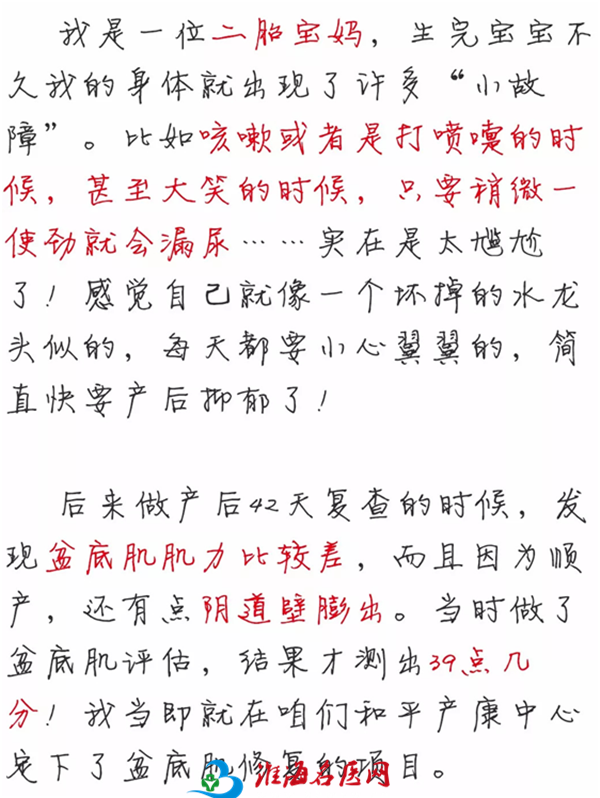 我是一位二胎宝妈，生完宝宝不
久我的身体就出现了许多“小故
障”。比如咳嗽或者是打喷嚏的时
候，甚至大笑的时候，只要稍微一
使劲就会漏尿……实在是太尴尬
了！感觉自己就像一个坏掉的水龙
头似的，每天都要小心翼翼的，简
直快要产后抑郁了！
后来做产后42天复查的时候，发
现盆底肌肌力比较差，而且因为顺
产，还有点阴道壁膨出。当时做了
盆底肌评估，结果才测出39点几
分！我当即就在咱们和平产康中心
定下了盆底肌修复的项目。
淮海名医网